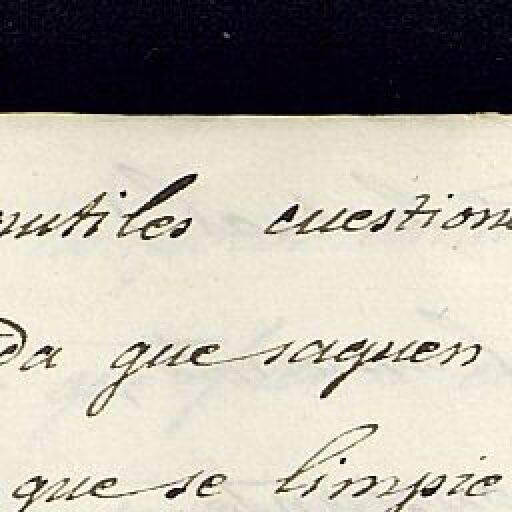 nutiles cuestion
da que saquen
que se limpie